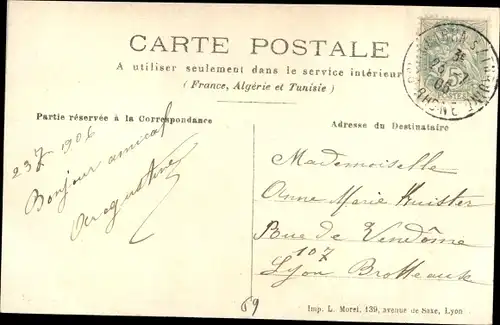 CARTE POSTALE
A utiliser seulement dans le service intérieur
( France, Algérie et Tunisie )
Partie réservée à la Correspondance
Adresse du Destinataire
23 7 1906
Bonjour amical
Augustine
Mademoiselle
Anne Marie
Rue de Vendôme
107
Lyon Brotteaux
69
Imp. L. Morel, 139, avenue de Saxe, Lyon